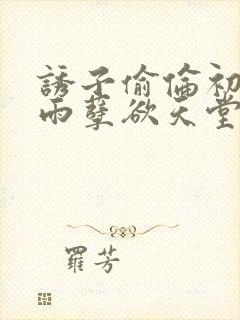 誘子偷倫初
雨孽欲天堂
羅芳